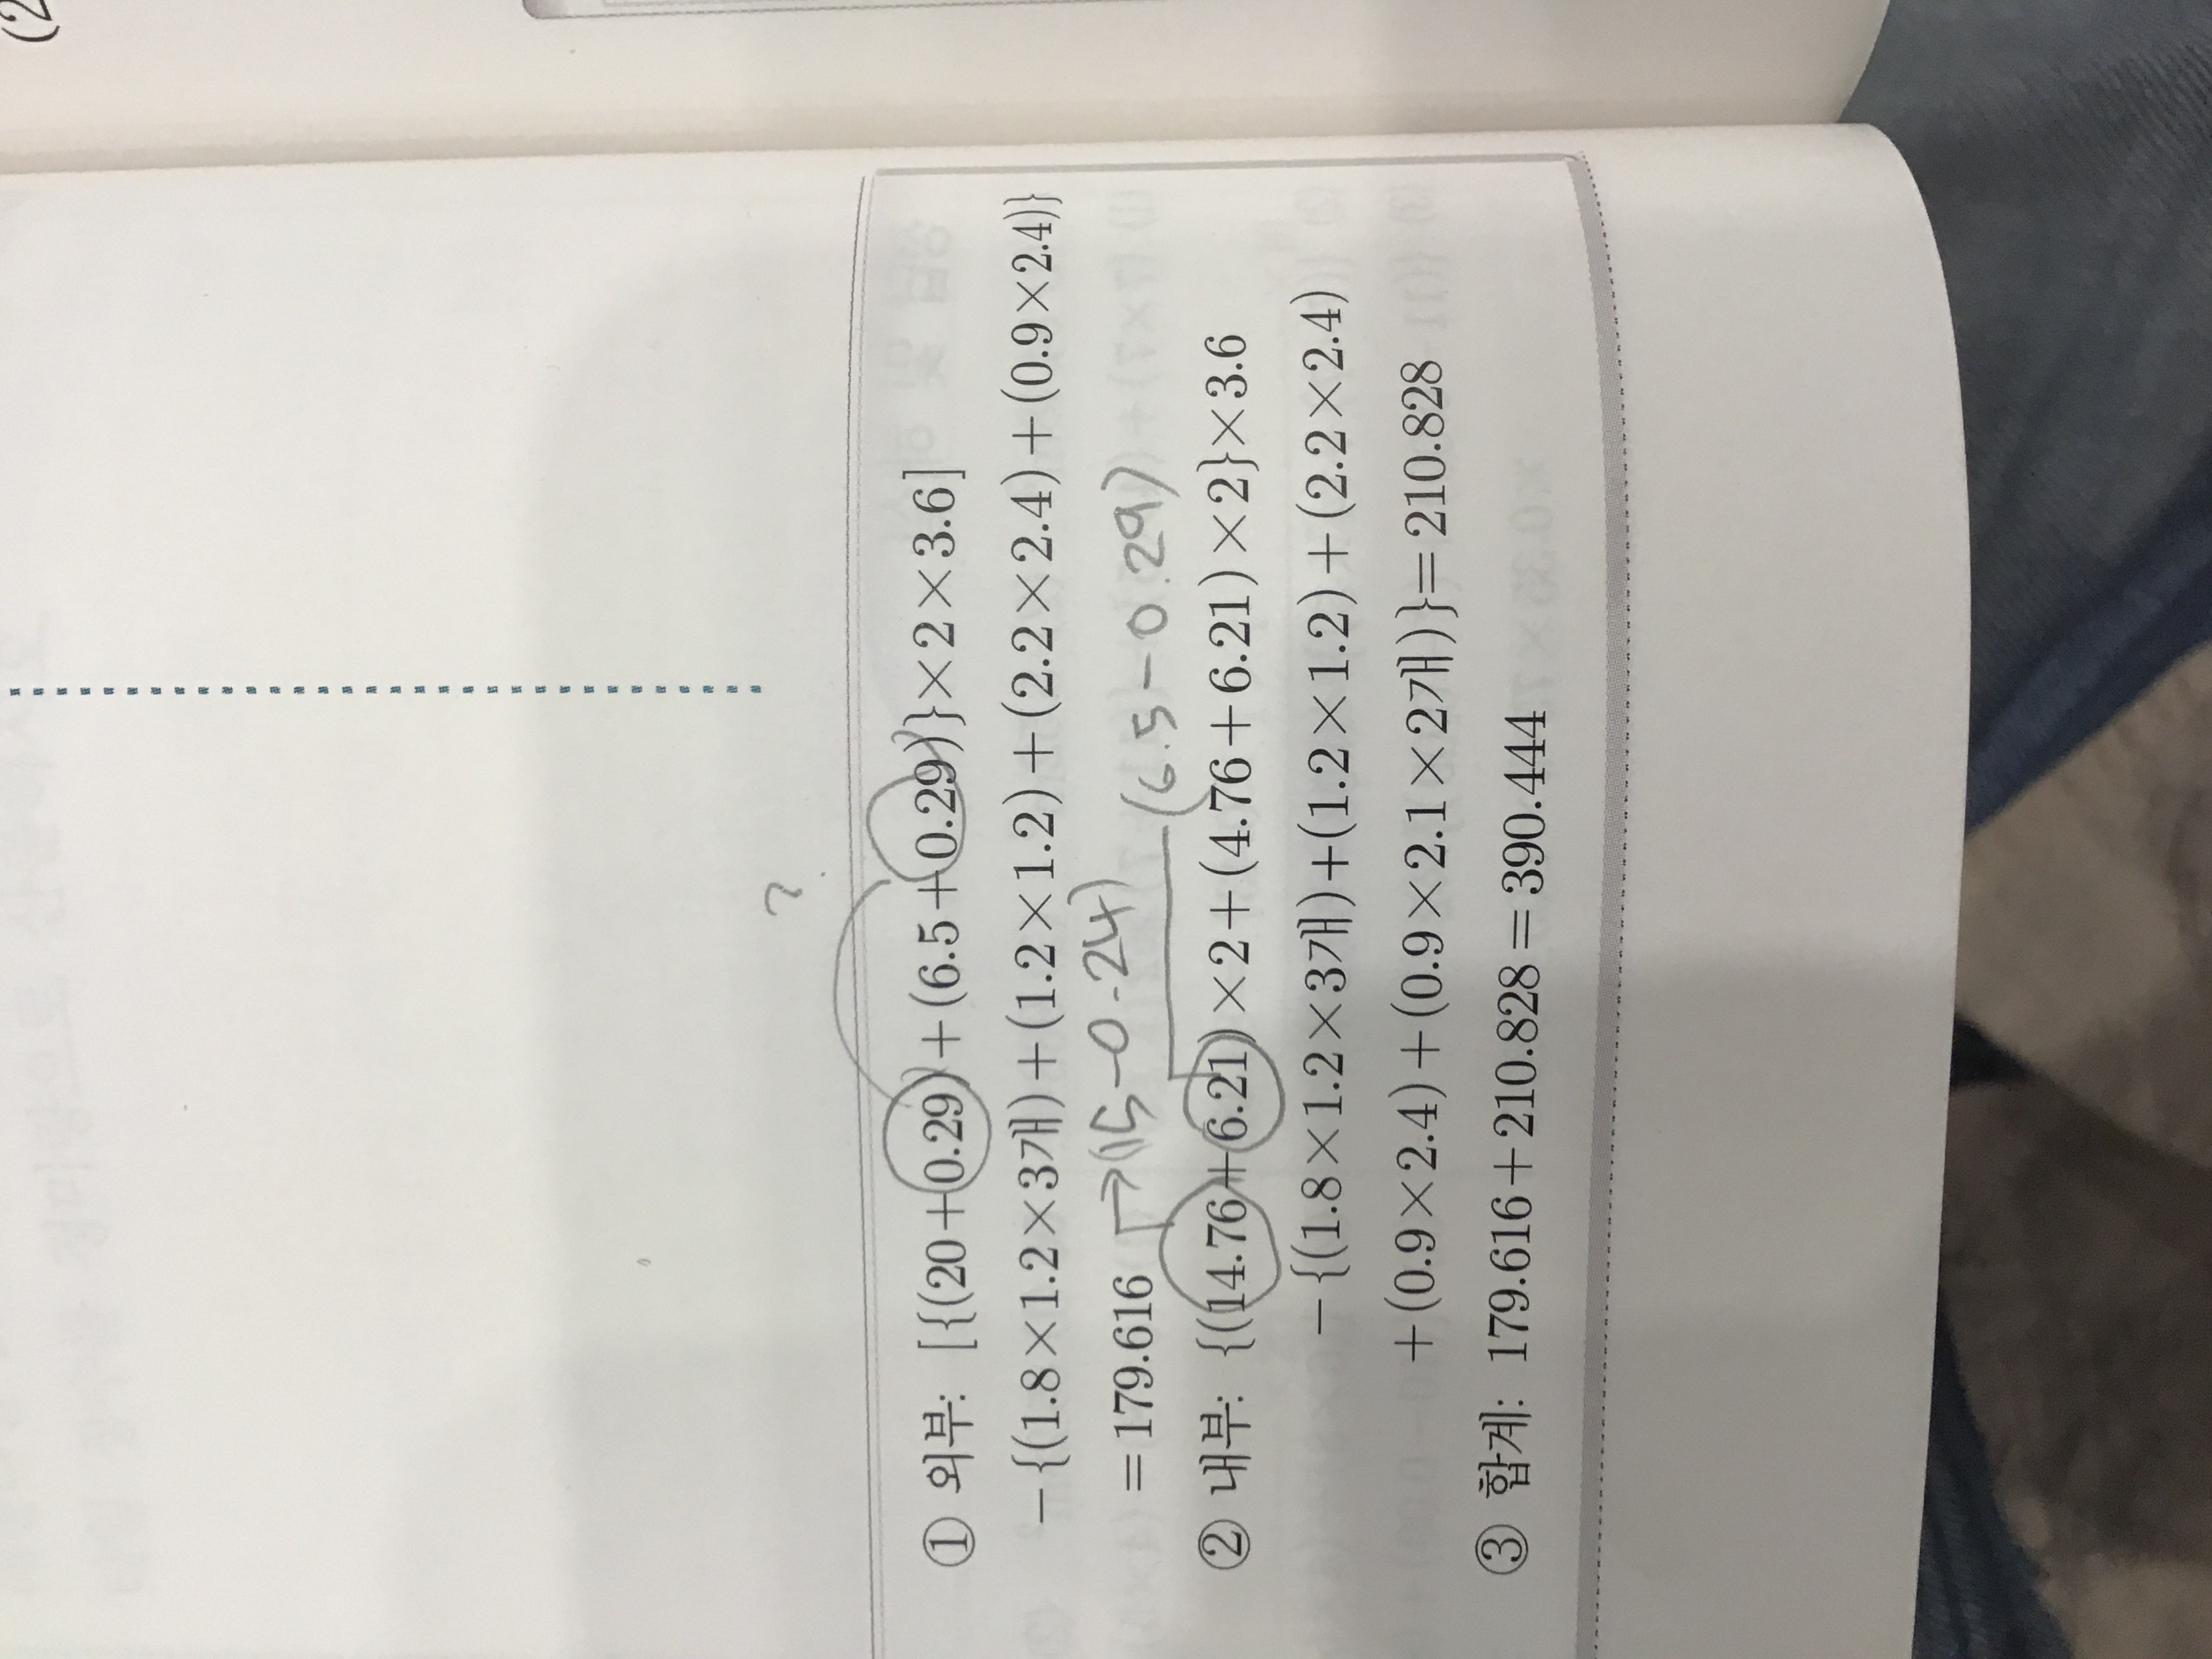 (2
?
① 외부: [{(20+0.29)+(6.5+0.29)}×2×3.6]
−{(1.8×1.2×3개)+(1.2×1.2)+(2.2×2.4)+(0.9×2.4)}
=179.616
(15-0.24)
(6.5-0.29)
② 내부: {(14.76+6.21)×2+(4.76+6.21)×2}×3.6
−{(1.8×1.2×3개)+(1.2×1.2)+(2.2×2.4)
+(0.9×2.4)+(0.9×2.1×2개)}=210.828
③ 합계: 179.616+210.828=390.444